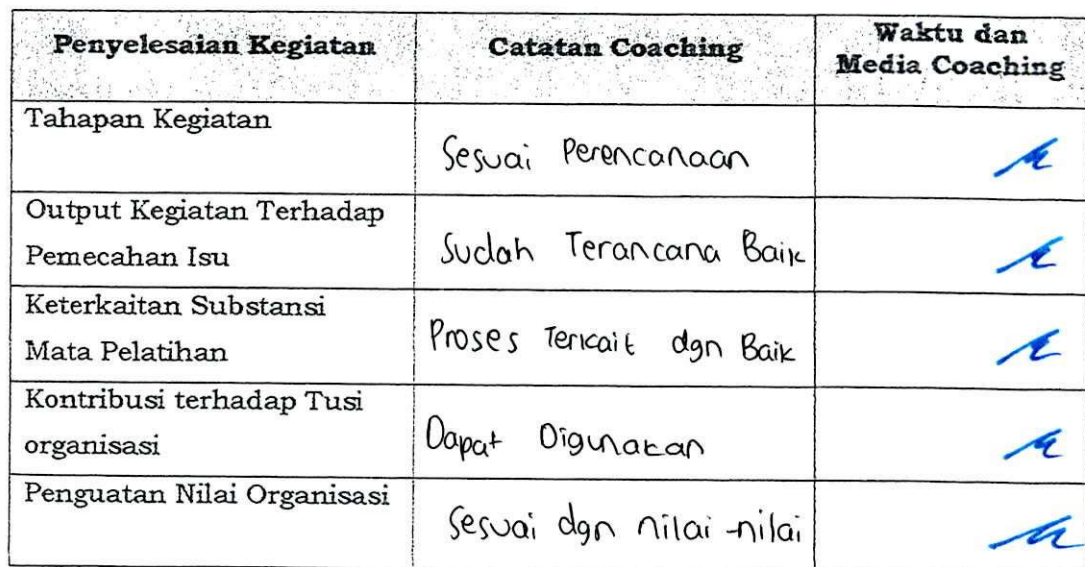 Penyelesaian Kegiatan
Catatan Coaching
Waktu dan
Media Coaching
Tahapan Kegiatan
Sesuai Perencanaan
Output Kegiatan Terhadap
Pemecahan Isu
Sudah Terancana Baik
Keterkaitan Substansi
Mata Pelatihan
Proses Terkait dgn Baik
Kontribusi terhadap Tusi
organisasi
Dapat Digunakan
Penguatan Nilai Organisasi
Sesuai dgn nilai-nilai